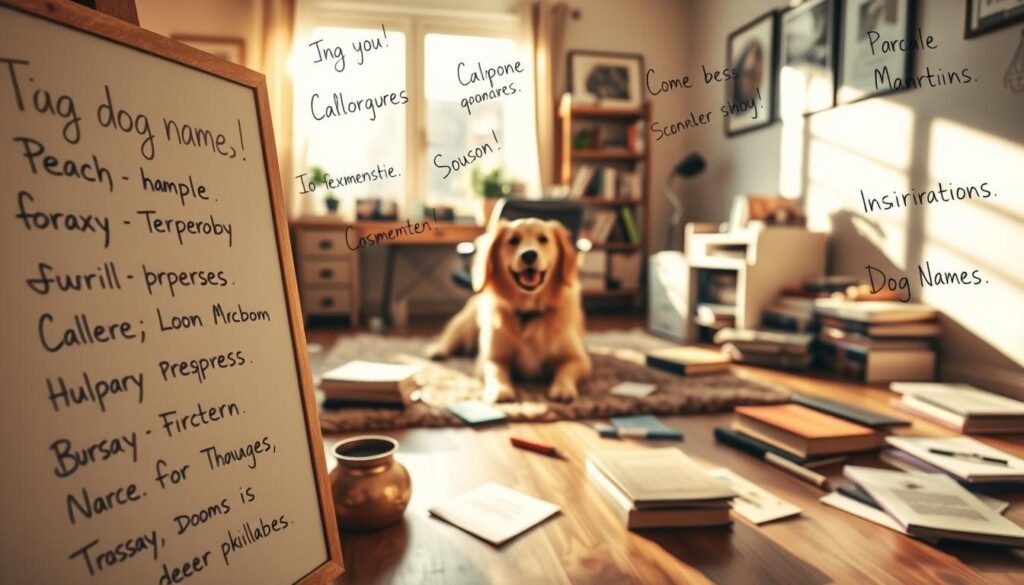 Tag dog name,!
Peach - hample.
foraxy - Terperoby
fwrill - prperses.
Callere; Loon Mrcbom
Hulpary Prespress.
Bursay - Firctern.
Narce. for Thauges,
Trassay, Dooms is
deeer pkillabes.
Ing you!
Callorgures
Calipone
qponares.
Souson!
Io fexmenstie.
Cosmemten!
Come bess
Sconaler shoy!
Parcale
Manrtins.
Insirirations.
Dog Names.